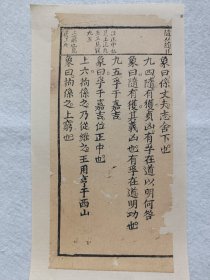 象曰係丈夫志舍下也
九四隨有獲貞凶有孚在道以明何咎
象曰隨有獲其義凶也有孚在道明功也
九五孚于嘉吉
象曰孚于嘉吉位正中也
上六拘係之乃從維之王用亨于西山
象曰拘係之上窮也